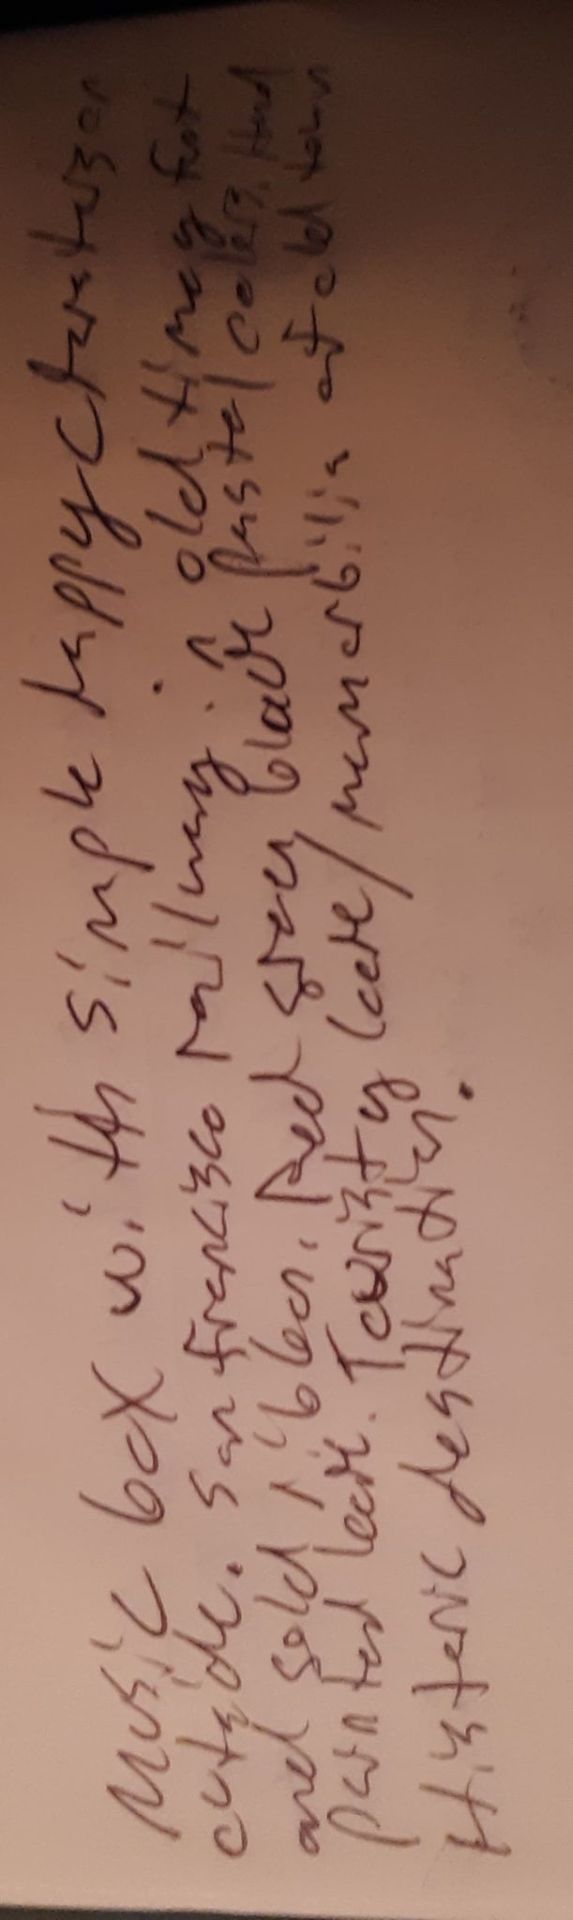 Music box with simple happy Characters on
outside. San francisco railway. "old timey font
and gold ribbon. Red green black pastel colors. Hand
painted look. Touristy look/memorbilia at old town
Historic destination.